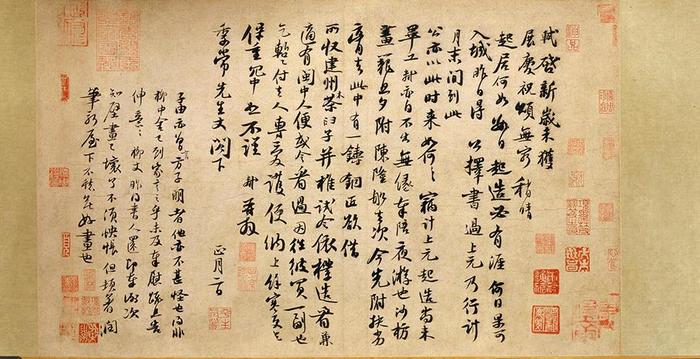 軾啓新歲未獲
展慶祝頌無窮稍晴
起居何如數日起造必有涯何日果可
入城昨日得公擇書過上元乃行計
月末間到此
公亦以此時來如何々竊計上元起造尚未
畢工軾亦自不出無緣奉陪夜游也沙枋
畫籠旦夕附陳隆舡去次今先附扶劣
膏去此中有一鑄銅匠欲借
所收建州木茶臼子并椎試令依樣造看兼
適有閩中人便或令看過因往彼買一副也
乞暫付去人專愛護便納上餘寒更乞
保重冗中恕不謹軾再拜
季常先生丈閣下
正月二日
子由亦曾言方子明者他亦不甚怪也得非
柳中舍已到家言之乎未及奉慰疏且告
伸意々柳丈昨得書人還即奉謝次
知壁畫已壞了不須怏悵但頓著潤
筆新屋下不愁無好畫也